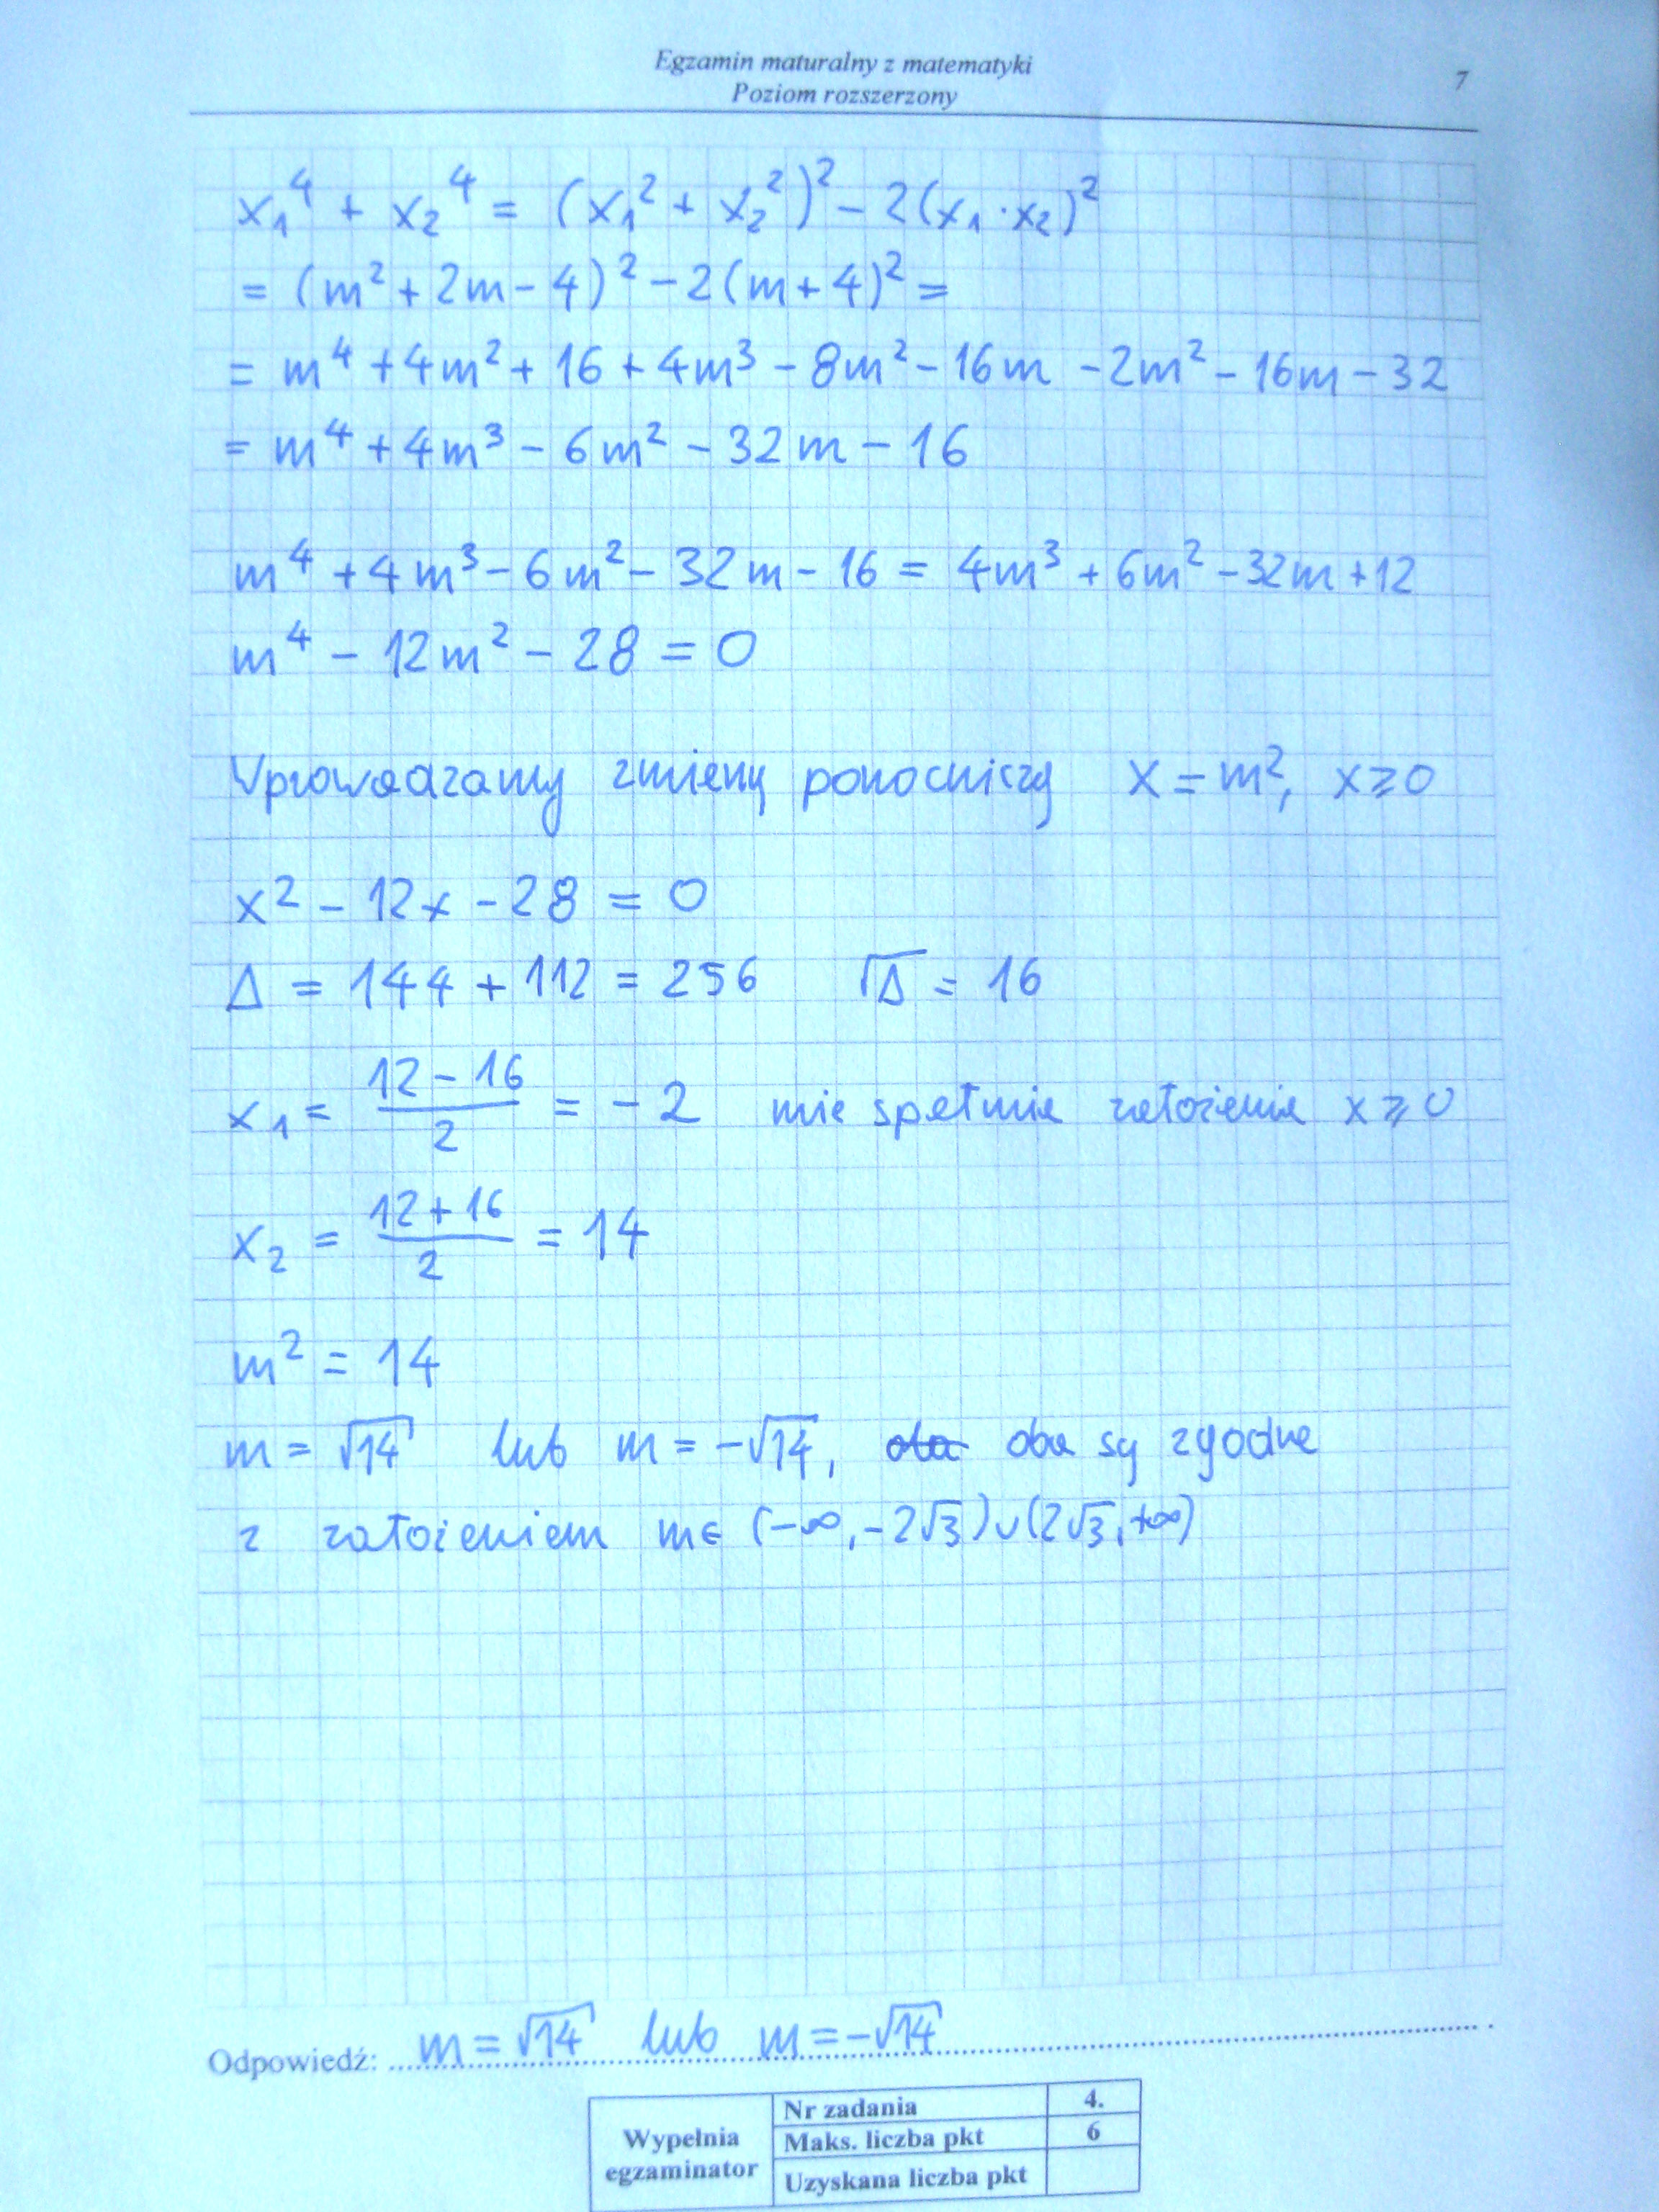 Egzamin maturalny z matematyki
Poziom rozszerzony
7
x₁⁴ + x₂⁴ = (x₁² + x₂²)² - 2(x₁·x₂)²
= (m² + 2m - 4)² - 2(m + 4)² =
= m⁴ + 4m² + 16 + 4m³ - 8m² - 16m - 2m² - 16m - 32
= m⁴ + 4m³ - 6m² - 32m - 16
m⁴ + 4m³ - 6m² - 32m - 16 = 4m³ + 6m² - 32m + 12
m⁴ - 12m² - 28 = 0
Wprowadzamy zmienną pomocniczą x = m², x ⩾ 0
x² - 12x - 28 = 0
Δ = 144 + 112 = 256 √Δ = 16
x₁ = (12 - 16)/2 = -2 nie spełnia założenia x ⩾ 0
x₂ = (12 + 16)/2 = 14
m² = 14
m = √14 lub m = -√14, oba są zgodne
z założeniem m ∈ (-∞, -2√3) ∪ (2√3, +∞)
Odpowiedź: m = √14 lub m = -√14
Wypełnia egzaminator
Nr zadania 4.
Maks. liczba pkt 6
Uzyskana liczba pkt